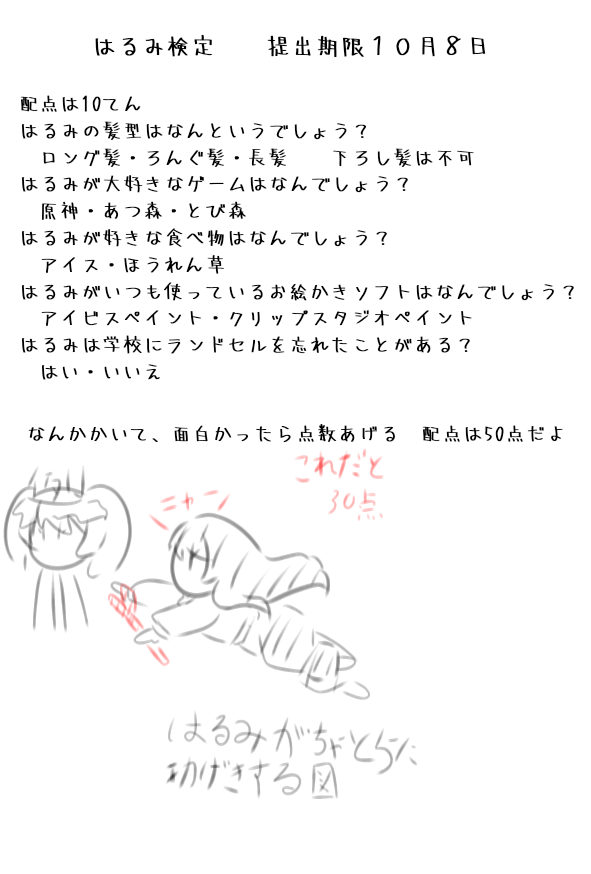 はるみ検定　提出期限１０月８日
配点は10てん
はるみの髪型はなんというでしょう？
ロング髪・ろんぐ髪・長髪　　下ろし髪は不可
はるみが大好きなゲームはなんでしょう？
原神・あつ森・とび森
はるみが好きな食べ物はなんでしょう？
アイス・ほうれん草
はるみがいつも使っているお絵かきソフトはなんでしょう？
アイビスペイント・クリップスタジオペイント
はるみは学校にランドセルを忘れたことがある？
はい・いいえ
なんかかいて、面白かったら点数あげる　配点は50点だよ
これだと
30点
ニャーン
はるみがちゃとらに
功げきする図